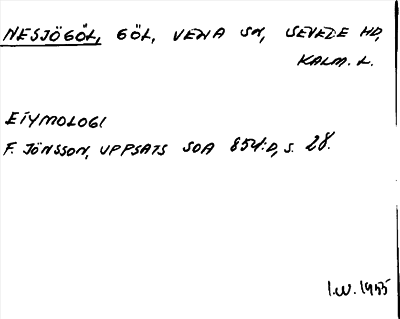 NESJÖGÖL, GÖL, VENA SN, SEVEDE HD,
KALM. L.
ETYMOLOGI
F. JÖNSSON, UPPSATS SOA 854:D, S. 28.
I.W. 1985